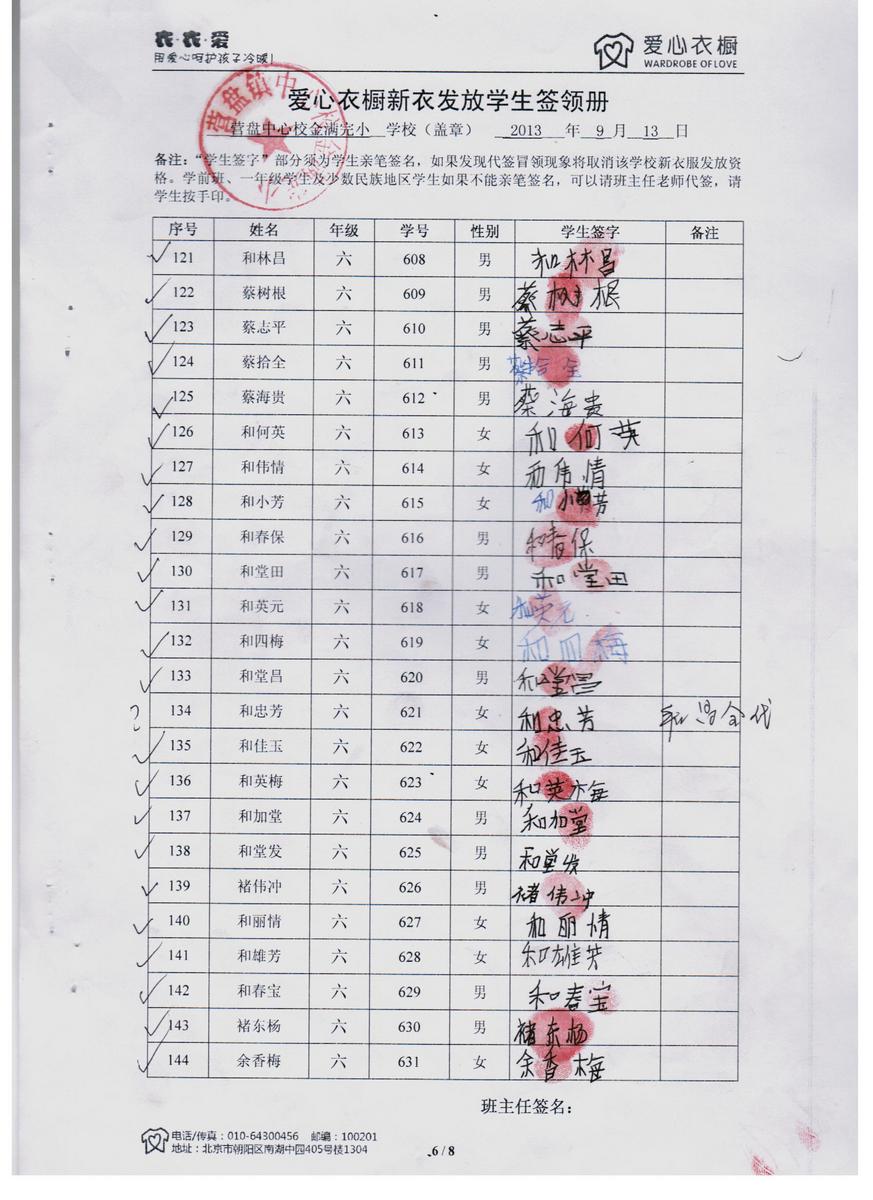 衣·衣·爱
用爱心呵护孩子冷暖!
爱心衣橱
WARDROBE OF LOVE
爱心衣橱新衣发放学生签领册
营盘中心校金满完小 学校（盖章） 2013 年 9 月 13 日
备注："学生签字"部分须为学生亲笔签名，如果发现代签冒领现象将取消该学校新衣服发放资
格。学前班、一年级学生及少数民族地区学生如果不能亲笔签名，可以请班主任老师代签，请
学生按手印。
序号 姓名 年级 学号 性别 学生签字 备注
121 和林昌 六 608 男 和林昌
122 蔡树根 六 609 男 蔡树根
123 蔡志平 六 610 男 蔡志平
124 蔡拾全 六 611 男 蔡拾全
125 蔡海贵 六 612 男 蔡海贵
126 和何英 六 613 女 和何英
127 和伟情 六 614 女 和伟情
128 和小芳 六 615 女 和小芳
129 和春保 六 616 男 和春保
130 和堂田 六 617 男 和堂田
131 和英元 六 618 女 和英元
132 和四梅 六 619 女 和四梅
133 和堂昌 六 620 男 和堂昌
134 和忠芳 六 621 女 和忠芳
135 和佳玉 六 622 女 和佳玉
136 和英梅 六 623 女 和英梅
137 和加堂 六 624 男 和加堂
138 和堂发 六 625 男 和堂发
139 褚伟冲 六 626 男 褚伟冲
140 和丽情 六 627 女 和丽情
141 和雄芳 六 628 女 和雄芳
142 和春宝 六 629 男 和春宝
143 褚东杨 六 630 男 褚东杨
144 余香梅 六 631 女 余香梅
班主任签名：
电话/传真：010-64300456 邮编：100201
地址：北京市朝阳区南湖中园405号楼1304
6 / 8